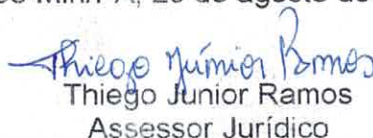 de agosto de
Thiego Júnior Ramos
Thiego Junior Ramos
Assessor Jurídico